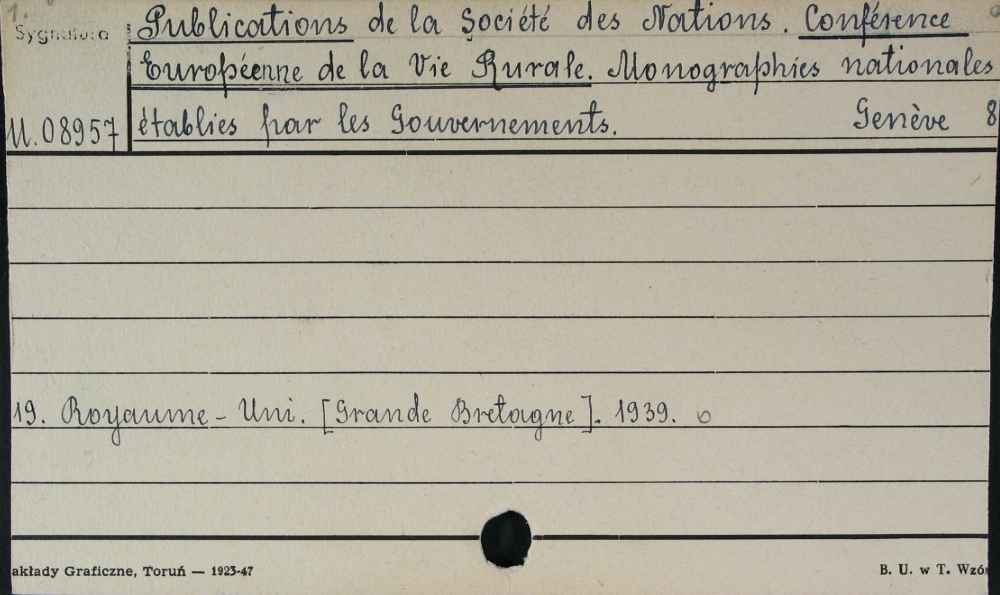 1.
Sygnatura
Publications de la Société des Nations. Conférence
Européenne de la Vie Rurale. Monographies nationales
U.08957 établies par les Gouvernements. Genève 8
19. Royaume-Uni. [Grande Bretagne]. 1939.
akłady Graficzne, Toruń — 1923-47 B. U. w T. Wzó